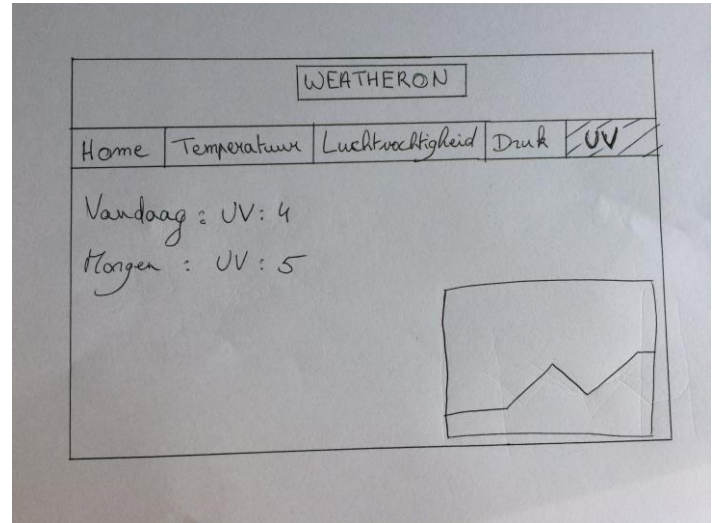 WEATHERON
Home Temperatuur Luchtvochtigheid Druk UV
Vandaag : UV: 4
Morgen : UV : 5